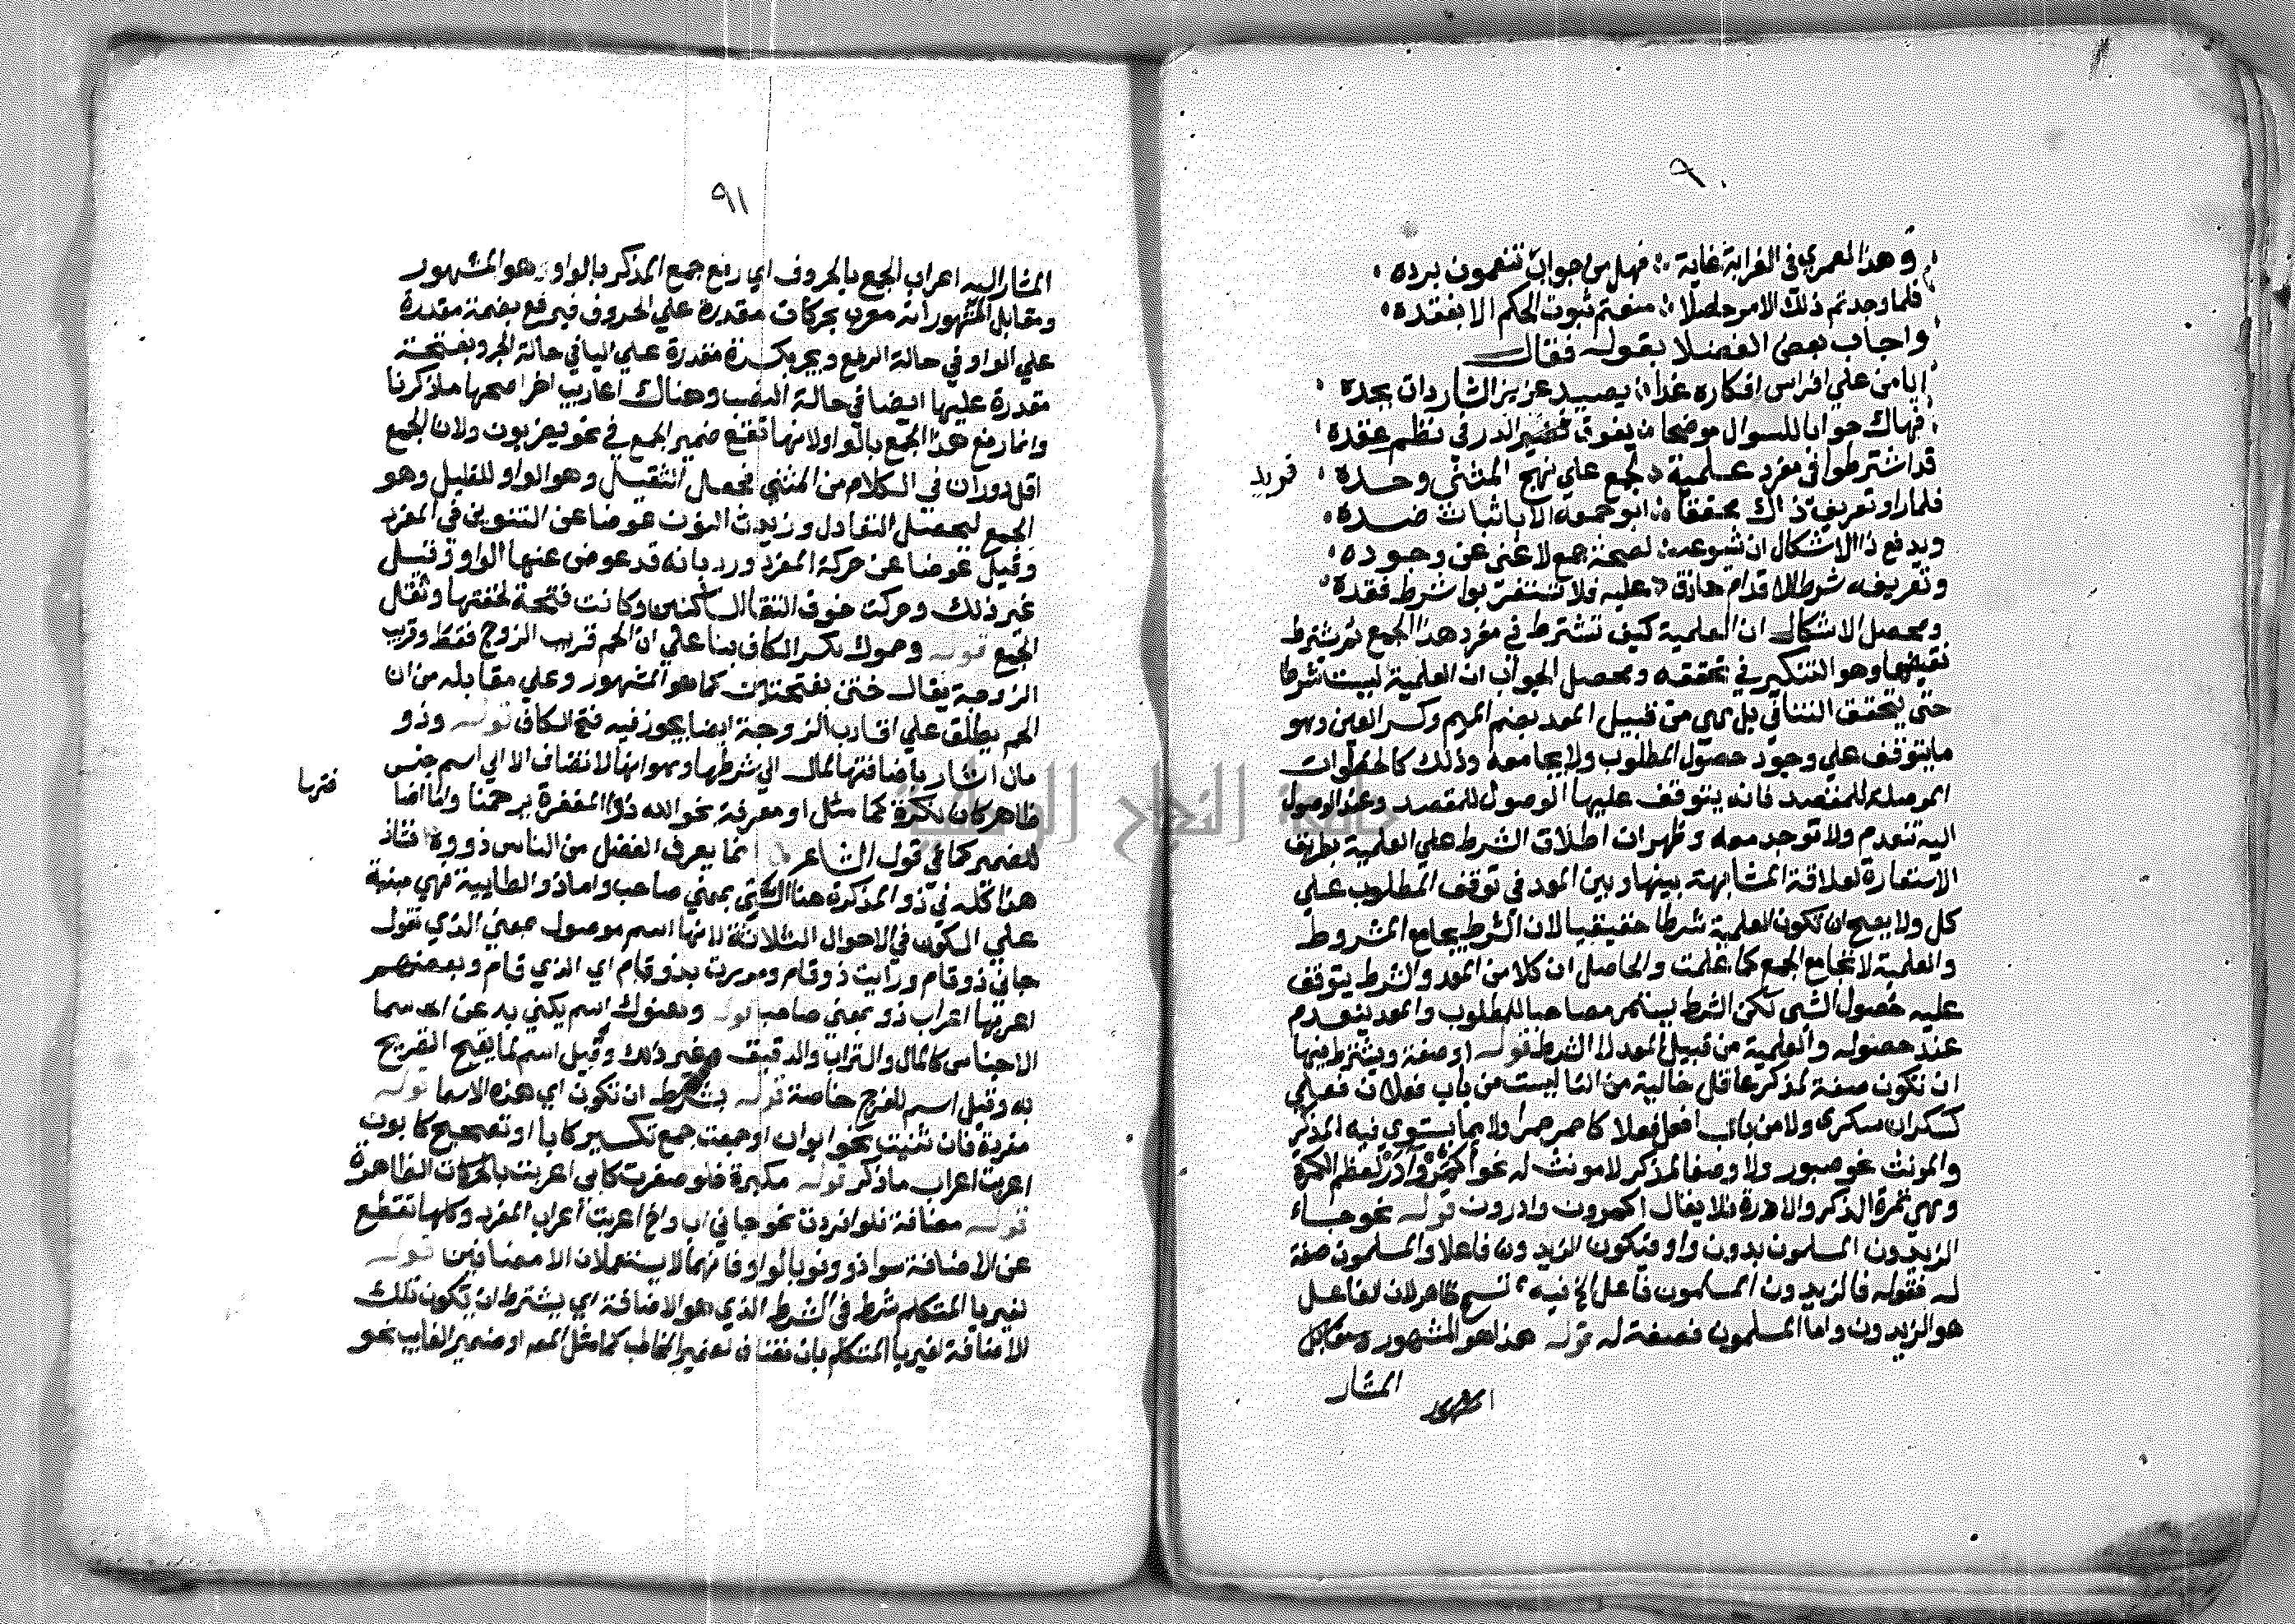 ٩٠
وهذا لعمري في الغرابة غاية فهل من جواب تنعمون برده
فلما وجدتم ذلك الامر حاصلا منعتم ثبوت الحكم الا بفقده
واجاب بعض الفضلا بقوله فقال
ايا من علي افراس افكاره غدا يصيد عزيز الشاردات بجده
فهاك جوابا للسوال موضحا يفوق نضير الدر في نظم عقده
قد اشترطوا في مفرد علمية لجمع علي نهج المثني وحده
فريد
فلما راو تعريف ذاك محققا ابو جمعه الا باثبات ضده
ويدفع ذا الاشكال ان شيوعه لصحة جمع لا غني عن وجوده
وتعريفه شرط للاقدام حاذق عليه فلا تغتر بوا شرط فقده
ومحصل الاشكال ان العلمية كيف تشترط في مفرد هذا الجمع ثم يشترط
نقيضها وهو التنكير في تحققه ومحصل الجواب ان العلمية ليست شرطا
حتي يتحقق التنافي بل هي من قبيل المعد بضم الميم وكسر العين وهو
ما يتوقف علي وجود حصول المطلوب ولا يجامعه وذلك كالخطوات
الموصلة للمقصد فانه يتوقف عليها الوصول للمقصد وعند الوصول
اليه تنعدم ولا توجد معه وظهران اطلاق الشرط علي العلمية بطريق
الاستعارة لعلاقة المشابهة بينها وبين المعد في توقف المطلوب علي
كل ولا يصح ان تكون العلمية شرطا حقيقيا لان الشرط يجامع المشروط
والعلمية لا تجامع الجمع كما علمت والحاصل ان كلا من المعد والشرط يتوقف
عليه حصول الشي لكن الشرط يستمر مصاحبا للمطلوب والمعد ينعدم
عند حصوله والعلمية من قبيل المعد لا الشرط قوله او صفة ويشترط فيها
ان تكون صفة لمذكر عاقل خالية من التا ليست من باب فعلان فعلي
كسكران سكرى ولا من باب افعل فعلا كاحمر حمرا ولا مما يستوي فيه المذكر
والمونث نحو صبور ولا وصفا لمذكر لا مونث له نحو أكمر وآدر لعظم الكمرة
وهي ثمرة الذكر والادرة فلا يقال اكمرون وادرون قوله نحو جاء
الزيدون المسلمون بدون واو فيكون الزيدون فاعلا والمسلمون صفة
له فقوله فالزيدون المسلمون فاعل الخ فيه تسمح ظاهر لان الفاعل
هو الزيدون واما المسلمون فصفة له قوله هذا هو المشهور ومقابل
المشار
المشهور
٩١
المشار اليه اعراب الجمع بالحروف اي رفع جمع المذكر بالواو هو المشهور
ومقابل المشهور انه معرب بحركات مقدرة علي الحروف فيرفع بضمة مقدرة
علي الواو في حالة الرفع ويجر بكسرة مقدرة علي اليا في حالة الجر وبفتحة
مقدرة عليها ايضا في حالة النصب وهناك اعاريب اخر اصحها ما ذكرنا
وانما رفع هذا الجمع بالواو لانها تقع ضمير الجمع في نحو يضربون ولان الجمع
اقل دورانا في الكلام من المثني فجعل الثقيل وهو الواو للقليل وهو
الجمع ليحصل التعادل وزيدت النون عوضا عن التنوين في المفرد
وقيل عوضا عن حركة المفرد ورد بانه قد عوض عنها الواو وقيل
غير ذلك وحركت خوف التقا الساكنين وكانت فتحة لخفتها وثقل
الجمع قوله وحموك بكسر الكاف بنا علي ان الحم قريب الزوج فقط وقريب
الزوجة يقال ختن بفتحتين كما هو المشهور وعلي مقابله من ان
الحم يطلق علي اقارب الزوجة ايضا يجوز فيه فتح الكاف قوله وذو
مال اشار باضافتها لمال الي شرطها وهو انها لا تضاف الا الي اسم جنس
ظاهر كان نكرة كما مثل او معرفة نحو الله ذو المغفرة يرحمنا واما اضا
فتها
للضمير كما في قول الشاعر انما يعرف الفضل من الناس ذووه فشاذ
هذا كله في ذو المذكرة هنا التي بمعني صاحب واما ذو الطاييية فهي مبنية
علي السكون في الاحوال الثلاثة لانها اسم موصول بمعني الذي تقول
جاني ذو قام ورايت ذو قام ومررت بذو قام اي الذي قام وبعضهم
اعربها اعراب ذو بمعني صاحب قوله وهنوك اسم يكني به عن اسما
الاجناس كالمال والتراب والدقيق وغير ذلك وقيل اسم لما يقبح التصريح
به وقيل اسم للفرج خاصة قوله بشرط ان تكون اي هذه الاسما قوله
مفردة فان ثنيت نحو ابوان او جمعت جمع تكسير كابا او تصحيح كابون
اعربت اعراب ما ذكر قوله مكبرة فلو صغرت كابي اعربت بالحركات الظاهرة
قوله مضافة فلو افردت نحو جاني اب واخ اعربت اعراب المفرد وكلها تقطع
عن الاضافة سوا ذو وفو بالواو فانهما لا يستعملان الا مضافين قوله
لغير يا المتكلم شرط في الشرط الذي هو الاضافة اي يشترط ان تكون تلك
الاضافة لغير يا المتكلم بان تضاف لضمير المخاطب كما مثل المص او ضمير الغايب نحو